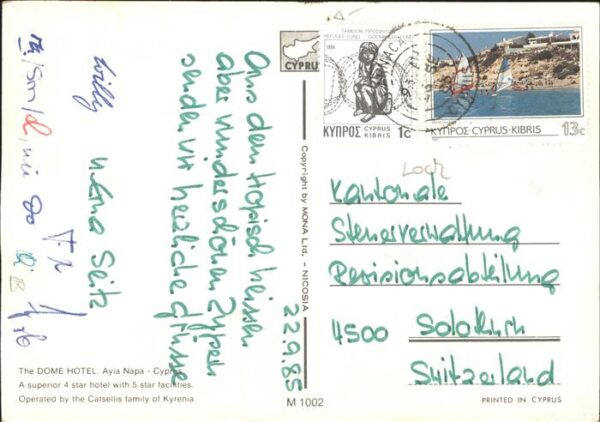 Aus dem tropisch heissen
aber wunderschönen Zypern
senden wir herzliche Grüsse
Willy
Erna Seitz
22.9.85
The DOME HOTEL. Ayia Napa - Cyprus
A superior 4 star hotel with 5 star facilities.
Operated by the Catsellis family of Kyrenia.
Copyright by MONA Ltd. - NICOSIA
M 1002
CYPRUS
REFUGEE FUND
ΚΥΠΡΟΣ CYPRUS KIBRIS 1c
ΚΥΠΡΟΣ·CYPRUS·KIBRIS 13c
Loch
Kantonale
Steuerverwaltung
Revisionsabteilung
4500 Solothurn
Switzerland
PRINTED IN CYPRUS